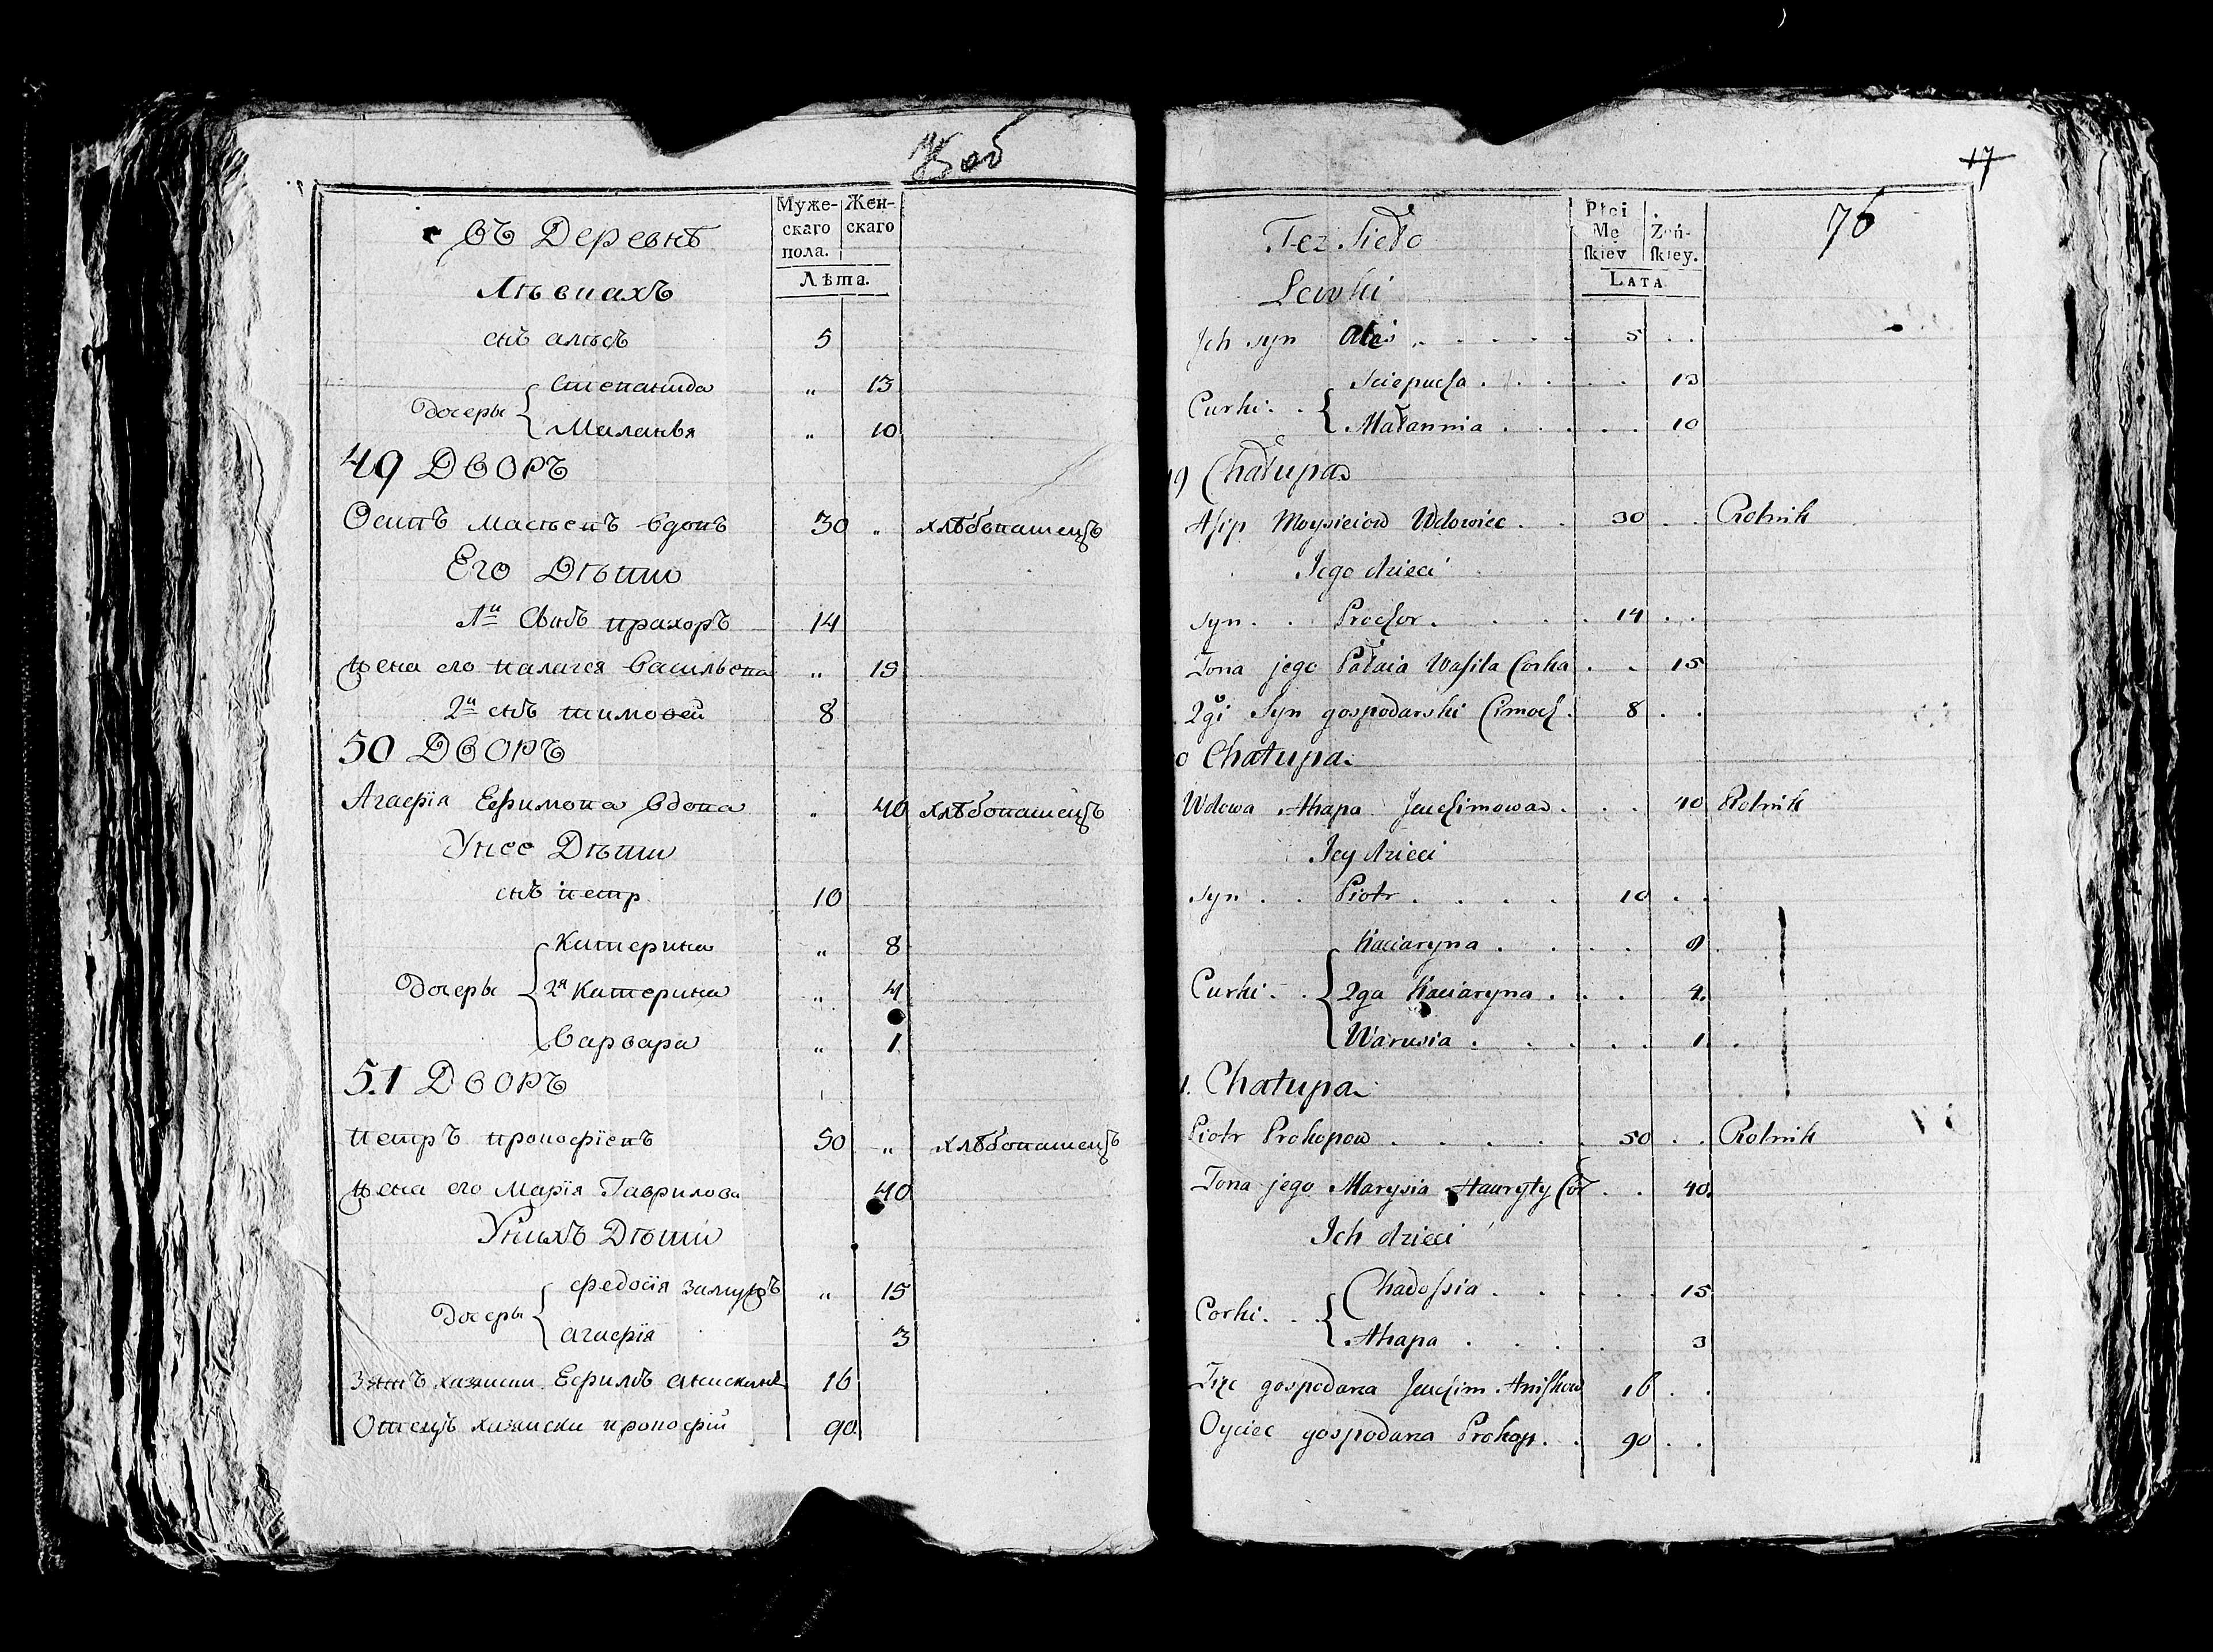 въ Деревнѣ
Муже-
скаго
пола.
Жен-
скаго
Лѣта.
Лѣвнахъ
снъ алѣсъ 5
Дочеры
Степанида „ 13
Миланья „ 10
49 Дворъ
Осипъ масѣевъ вдовъ 30 „ хлѣбопашецъ
Его Дѣти
1й Свнъ прахоръ 14
жена его палагея васильева „ 15
2й снъ тимоѳей 8
50 Дворъ
Агафїя Ефимова вдова „ 40 хлѣбопашецъ
Унее Дѣти
снъ петр 10
Дочеры
Катерина „ 8
2я Катерина „ 4
Варвара „ 1
51 Дворъ
петръ прокофїевъ 50 „ хлѣбопашецъ
жена его Марїя Гаврилова 40
Унихъ Дѣти
Дочеры
Федосїя замужъ „ 15
агафїя 3
зять хазяиски Ефимъ 16
Отецъ хазяиски прокофїй 90
17
76
Też Sieło
Płci
Mę
ſkiey
Żeń-
ſkiey.
LATA
Lewki
Jch syn Ałeś 5 . .
Curki
Sciepucha 13
Małannia 10
9 Chałupa
Aſip Moysieiow Wdowiec 30 . . Rolnik
Jego dzieci
syn Prochor 14 . .
Żona jego Pałaia Waſila Corka . . 15
2gi Syn gospodarski Cimoch 8 . .
0 Chałupa
Wdowa Ahapa Jeuchimowa . . 40 Rolnik
Jey dzieci
syn Piotr 10 . .
Curki
Kaciaryna 8
2ga Kaciaryna 4
Warusia 1
1. Chałupa
Piotr Prokopow 50 . . Rolnik
Żona jego Marysia Hauryły Cor . . 40
Ich dzieci
Corki
Chadoſsia 15
Ahapa 3
Zięc gospodarza Jeuchim Aniſkow 16 . .
Oyciec gospodarza Prokop 90 . .